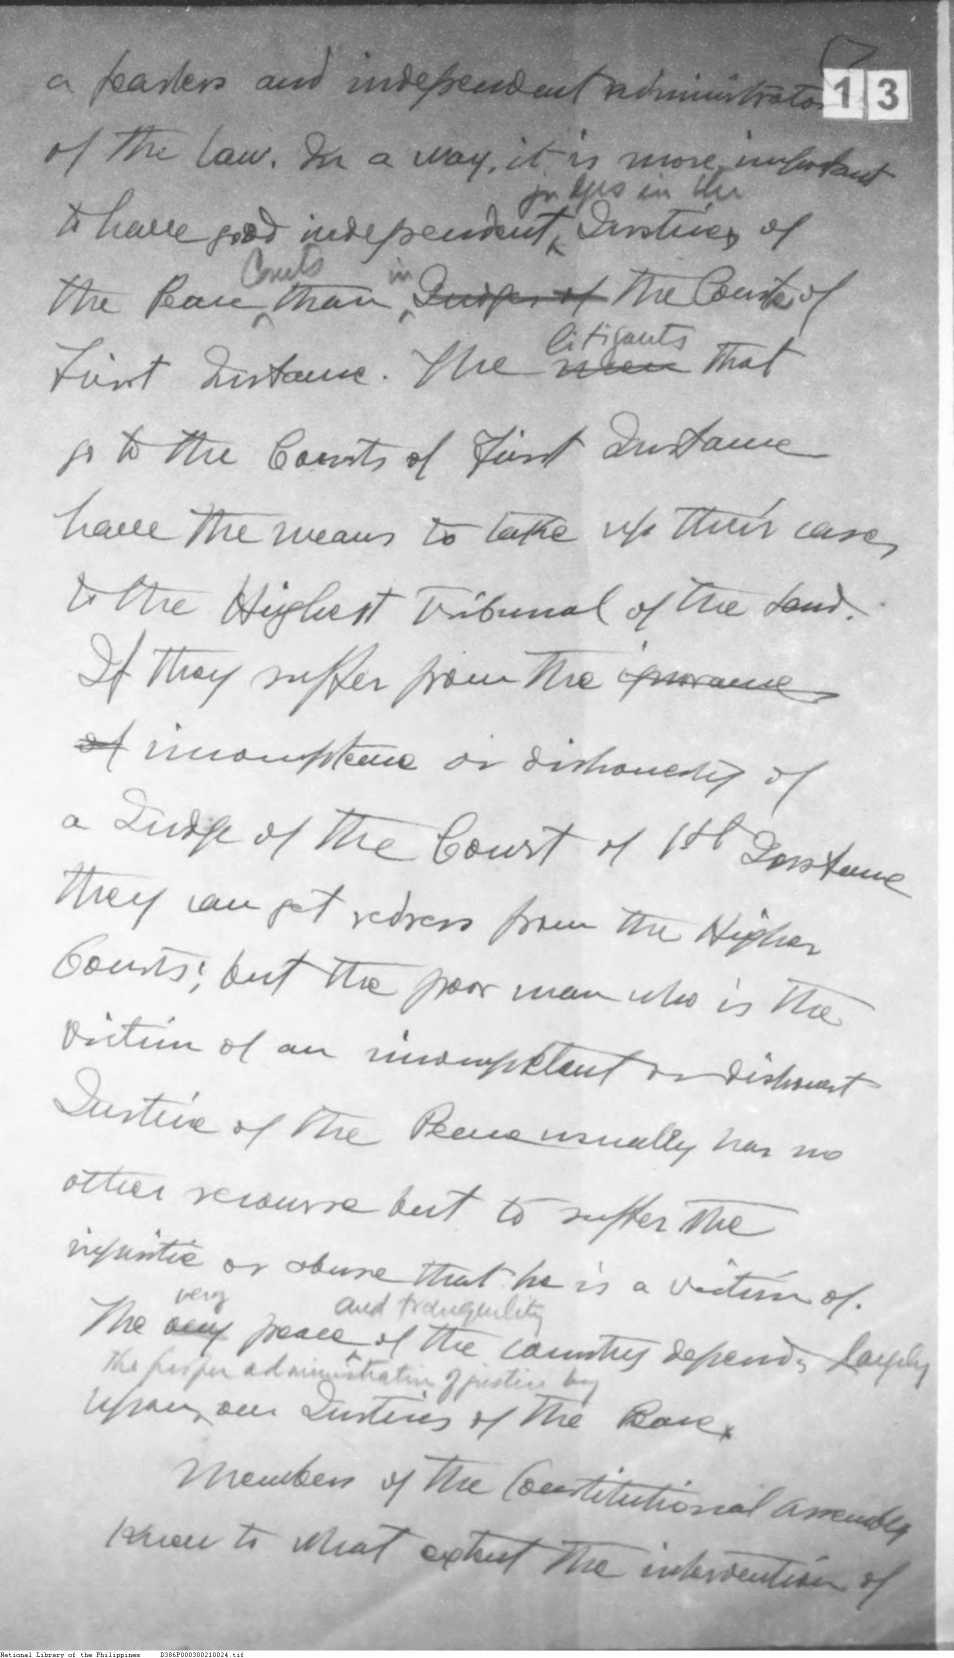 13
a fearless and independent administrator
of the law. In a way, it is more important
judges in the
to have good independent Justice of
Courts in
the Peace than Judges of the Courts of
litigants
First Instance. The men that
go to the Courts of First Instance
have the means to take up their cases
to the Highest Tribunal of the land.
If they suffer from the ignorance
of incompetence or dishonesty of
a Judge of the Court of 1st Instance
they can get redress from the Higher
Courts; but the poor man who is the
victim of an incompetent or dishonest
Justice of the Peace usually has no
other recourse but to suffer the
injustice or abuse that he is a victim of.
very and tranquility
The peace of the country depends largely
the proper administration of justice by
upon our Justices of the Peace.
Members of the Constitutional Assembly
know to what extent the intervention of
National Library of the Philippines D386P000300210024.tif